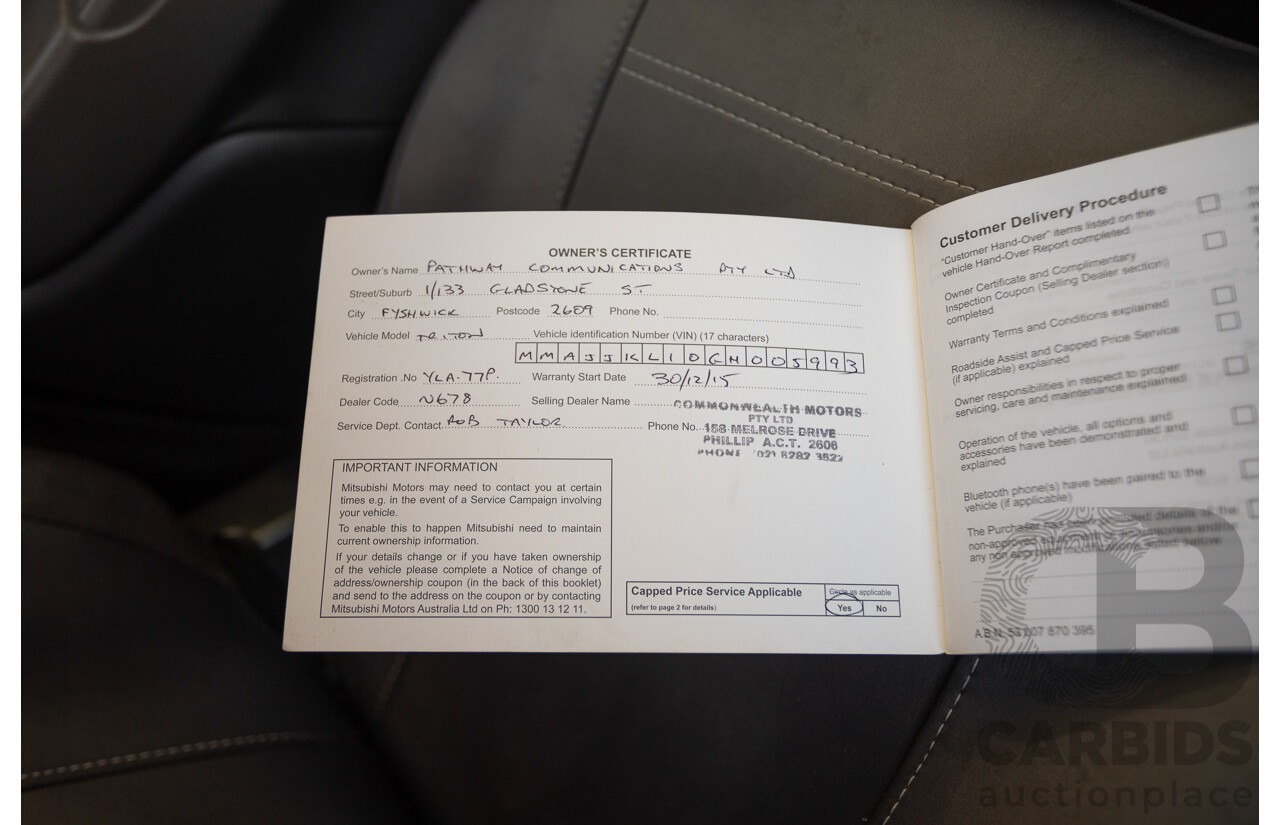 OWNER'S CERTIFICATE
Owner's Name PATHWAY COMMUNICATIONS PTY LTD
Street/Suburb 1/133 GLADSTONE ST
City FYSHWICK Postcode 2609 Phone No.
Vehicle Model TRITON Vehicle identification Number (VIN) (17 characters)
MMAJJKL10GH005993
Registration .No YLA.77P. Warranty Start Date 30/12/15
Dealer Code N678 Selling Dealer Name COMMONWEALTH MOTORS
PTY LTD
Service Dept. Contact ROB TAYLOR Phone No. 158 MELROSE DRIVE
PHILLIP A.C.T. 2606
PHONE
IMPORTANT INFORMATION
Mitsubishi Motors may need to contact you at certain
times e.g. in the event of a Service Campaign involving
your vehicle.
To enable this to happen Mitsubishi need to maintain
current ownership information.
If your details change or if you have taken ownership
of the vehicle please complete a Notice of change of
address/ownership coupon (in the back of this booklet)
and send to the address on the coupon or by contacting
Mitsubishi Motors Australia Ltd on Ph: 1300 13 12 11.
Capped Price Service Applicable
(refer to page 2 for details)
Circle as applicable
Yes No
Customer Delivery Procedure
"Customer Hand-Over" items listed on the
vehicle Hand-Over Report completed
Owner Certificate and Complimentary
Inspection Coupon (Selling Dealer section)
completed
Warranty Terms and Conditions explained
Roadside Assist and Capped Price Service
(if applicable) explained
Owner responsibilities in respect to proper
servicing, care and maintenance explained
Operation of the vehicle, all options and
accessories have been demonstrated and
explained
Bluetooth phone(s) have been paired to the
vehicle (if applicable)
The Purchaser has been details of the
non-approved
any non approved
CARBIDS
auctionplace